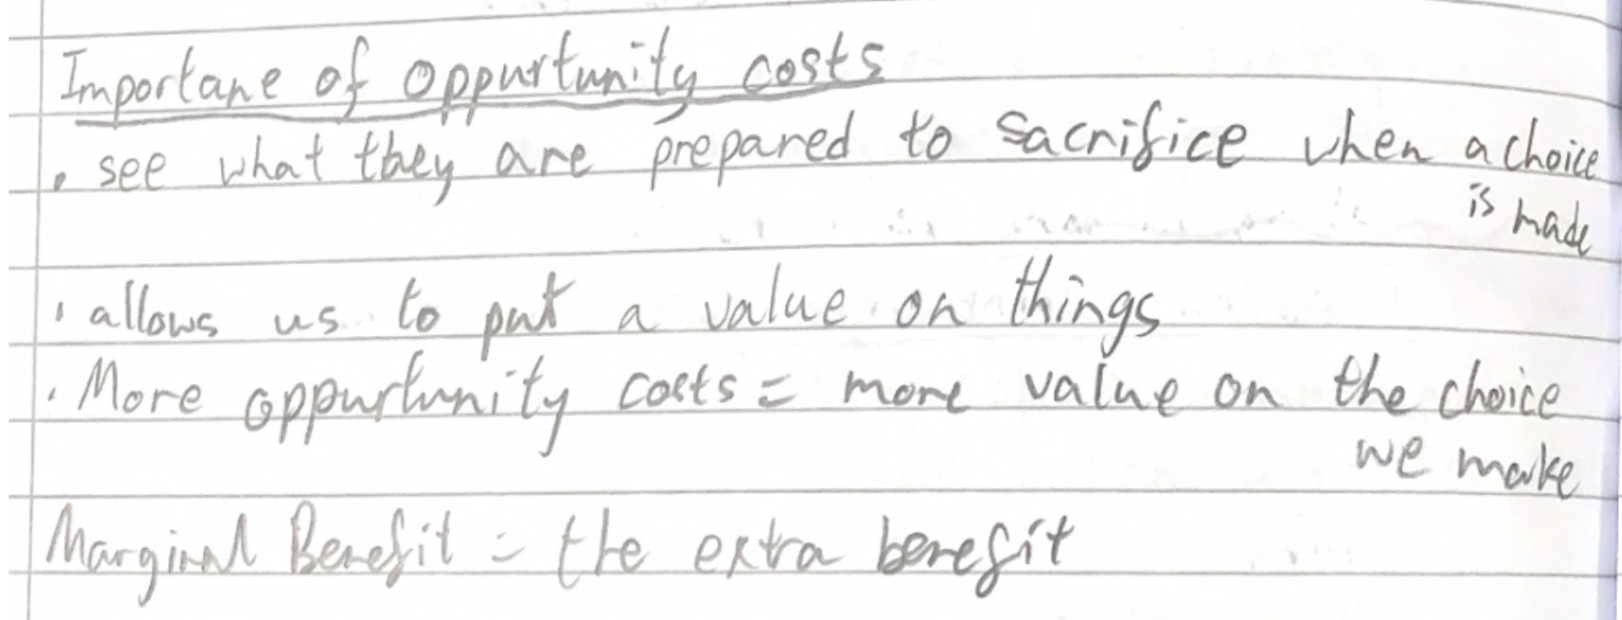 Importane of oppurtunity costs
• see what they are prepared to sacrifice when a choice
is made
• allows us to put a value on things
• More oppurtunity costs = more value on the choice
we make
Marginal Benefit = the extra benefit